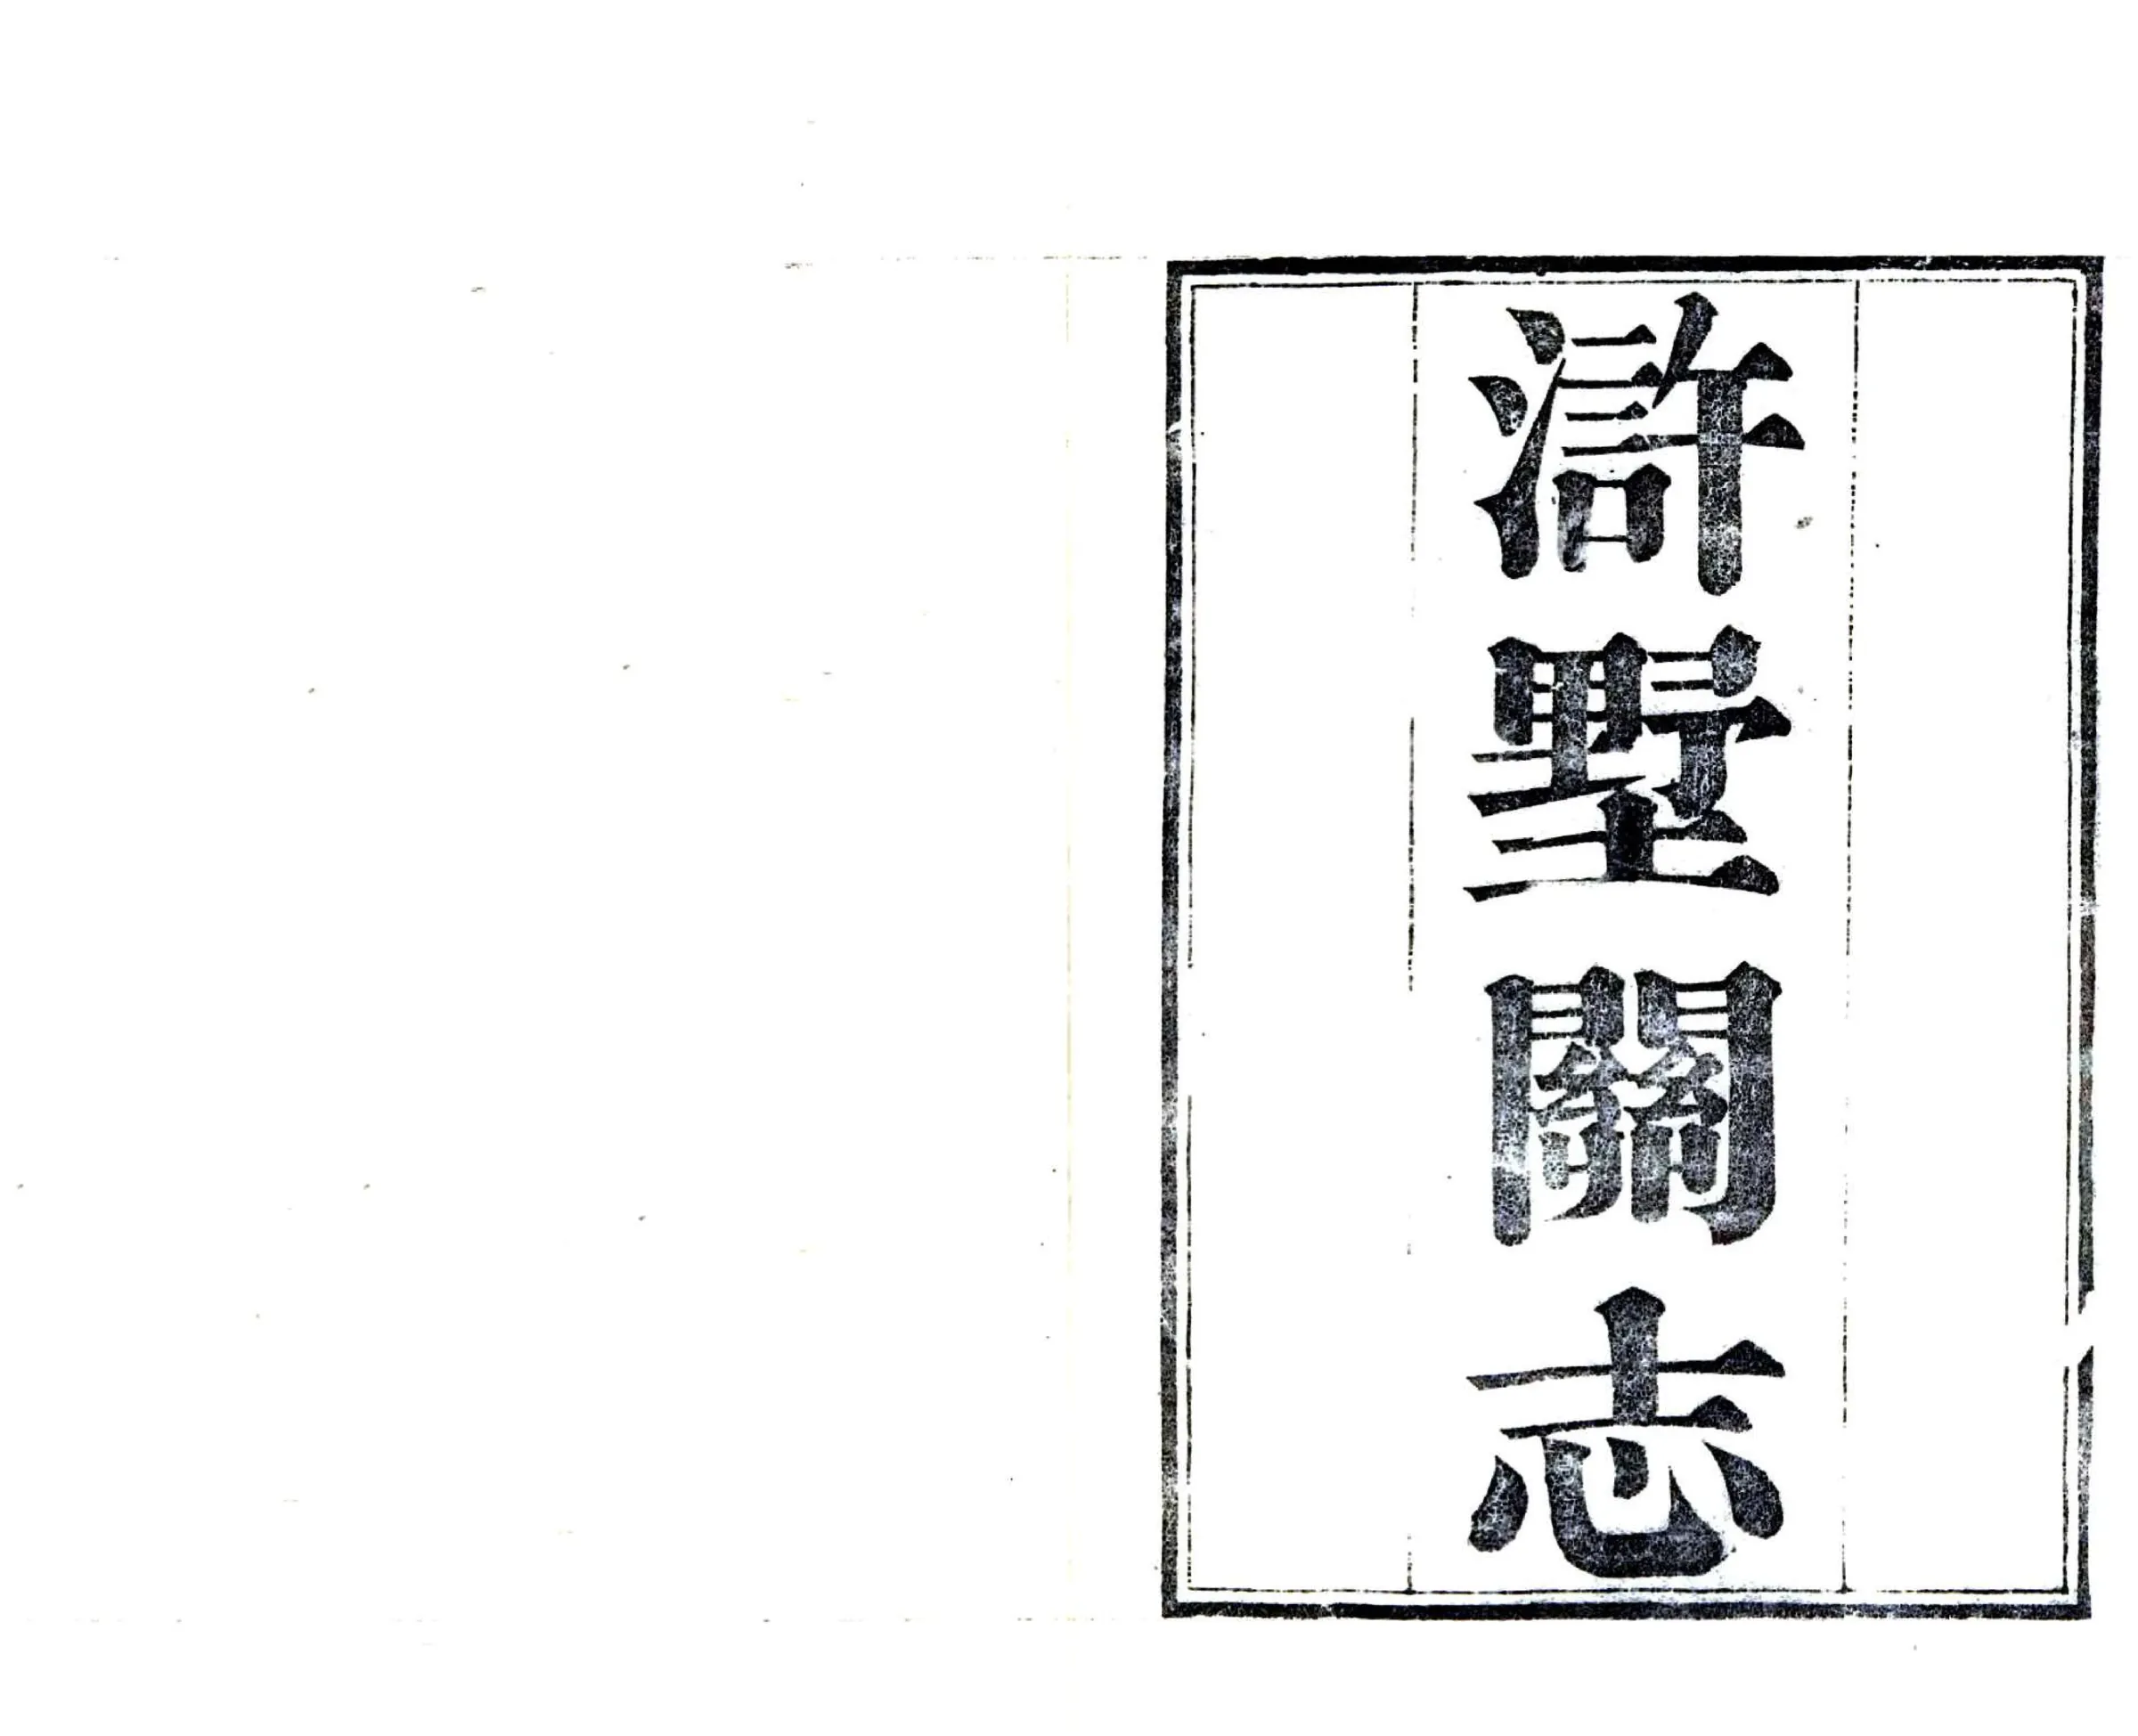 滸墅關志